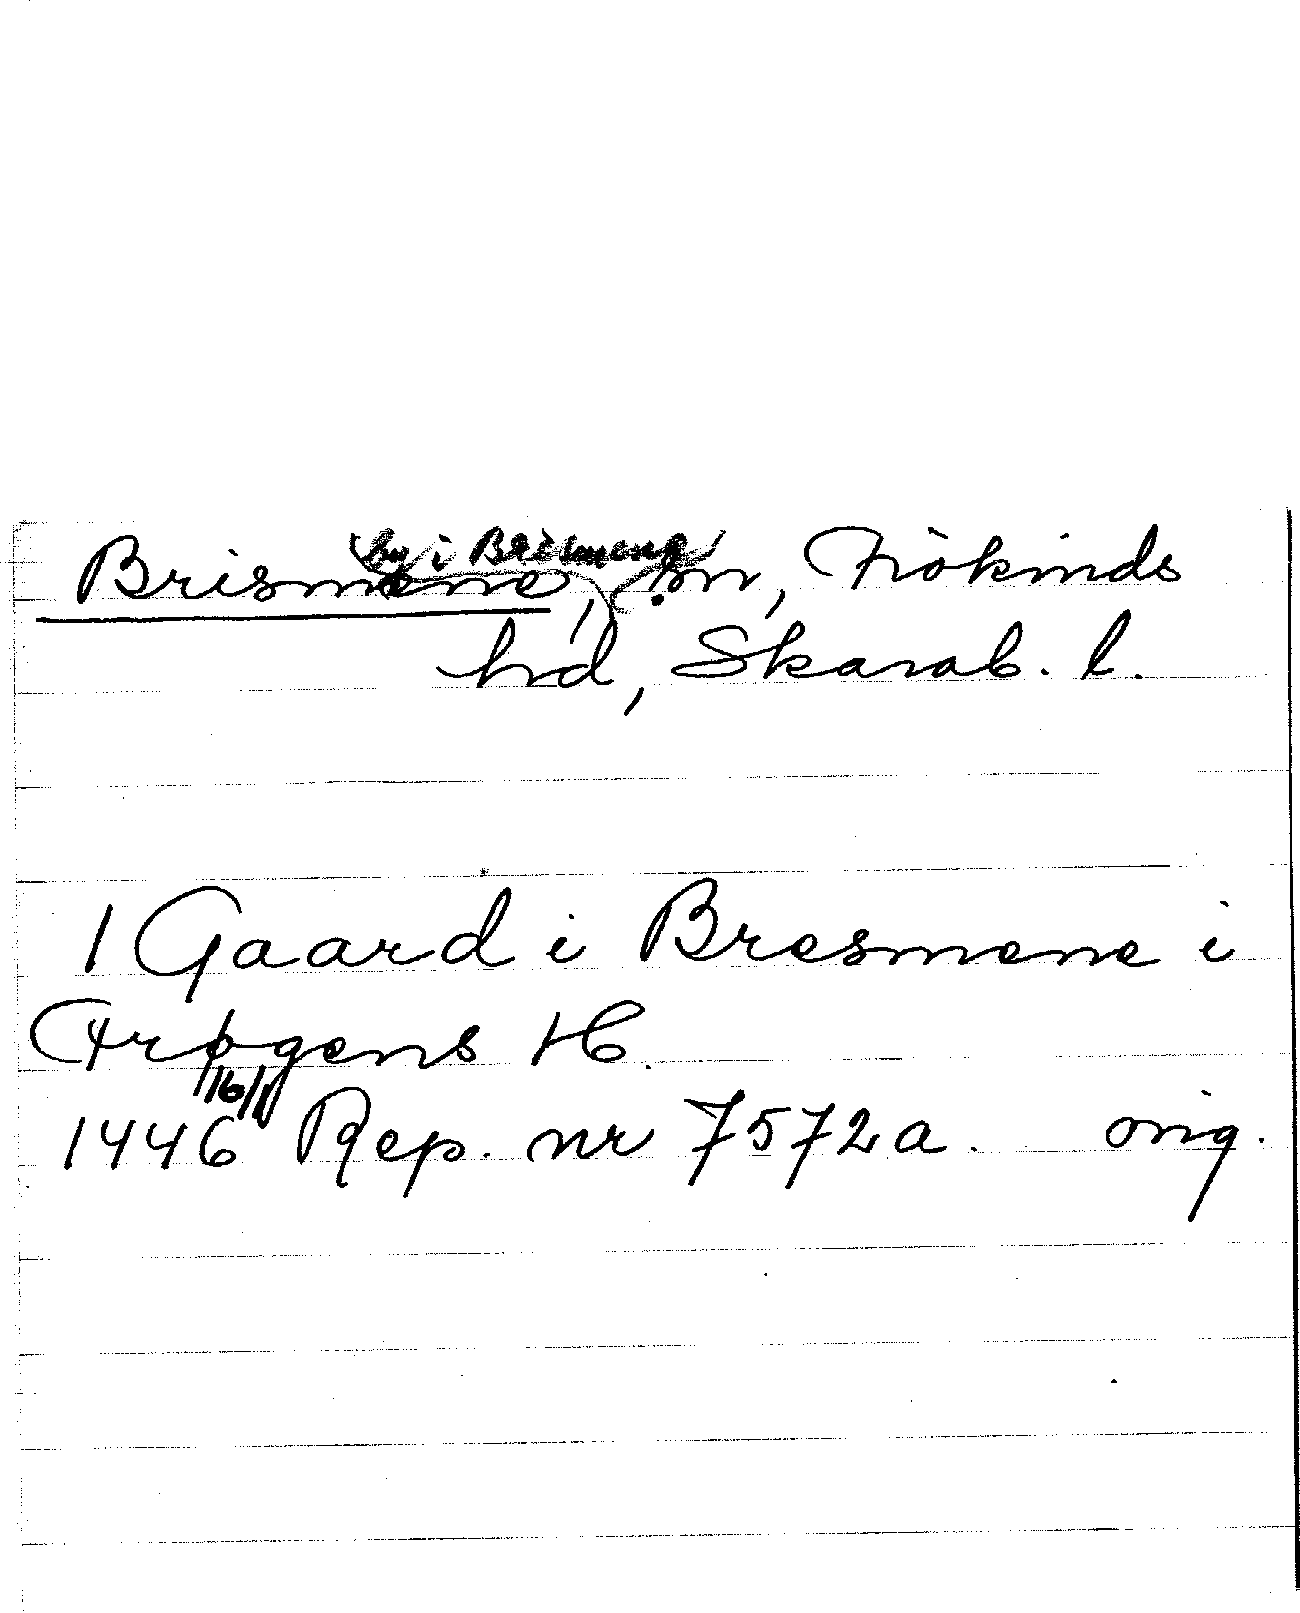 (by i Brismene)
Brismene, sn, Frökinds
hd, Skarab. l.
1 Gaard i Bresmene i
Frøgens H.
16/1
1446 Rep. nr 7572a. orig.